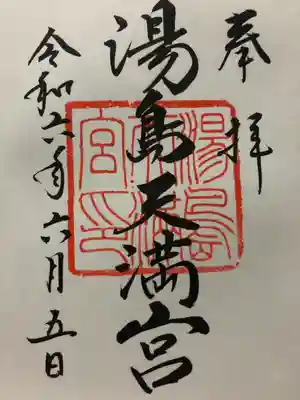 奉拝
湯島天満宮
湯島天満宮印
令和六年六月五日